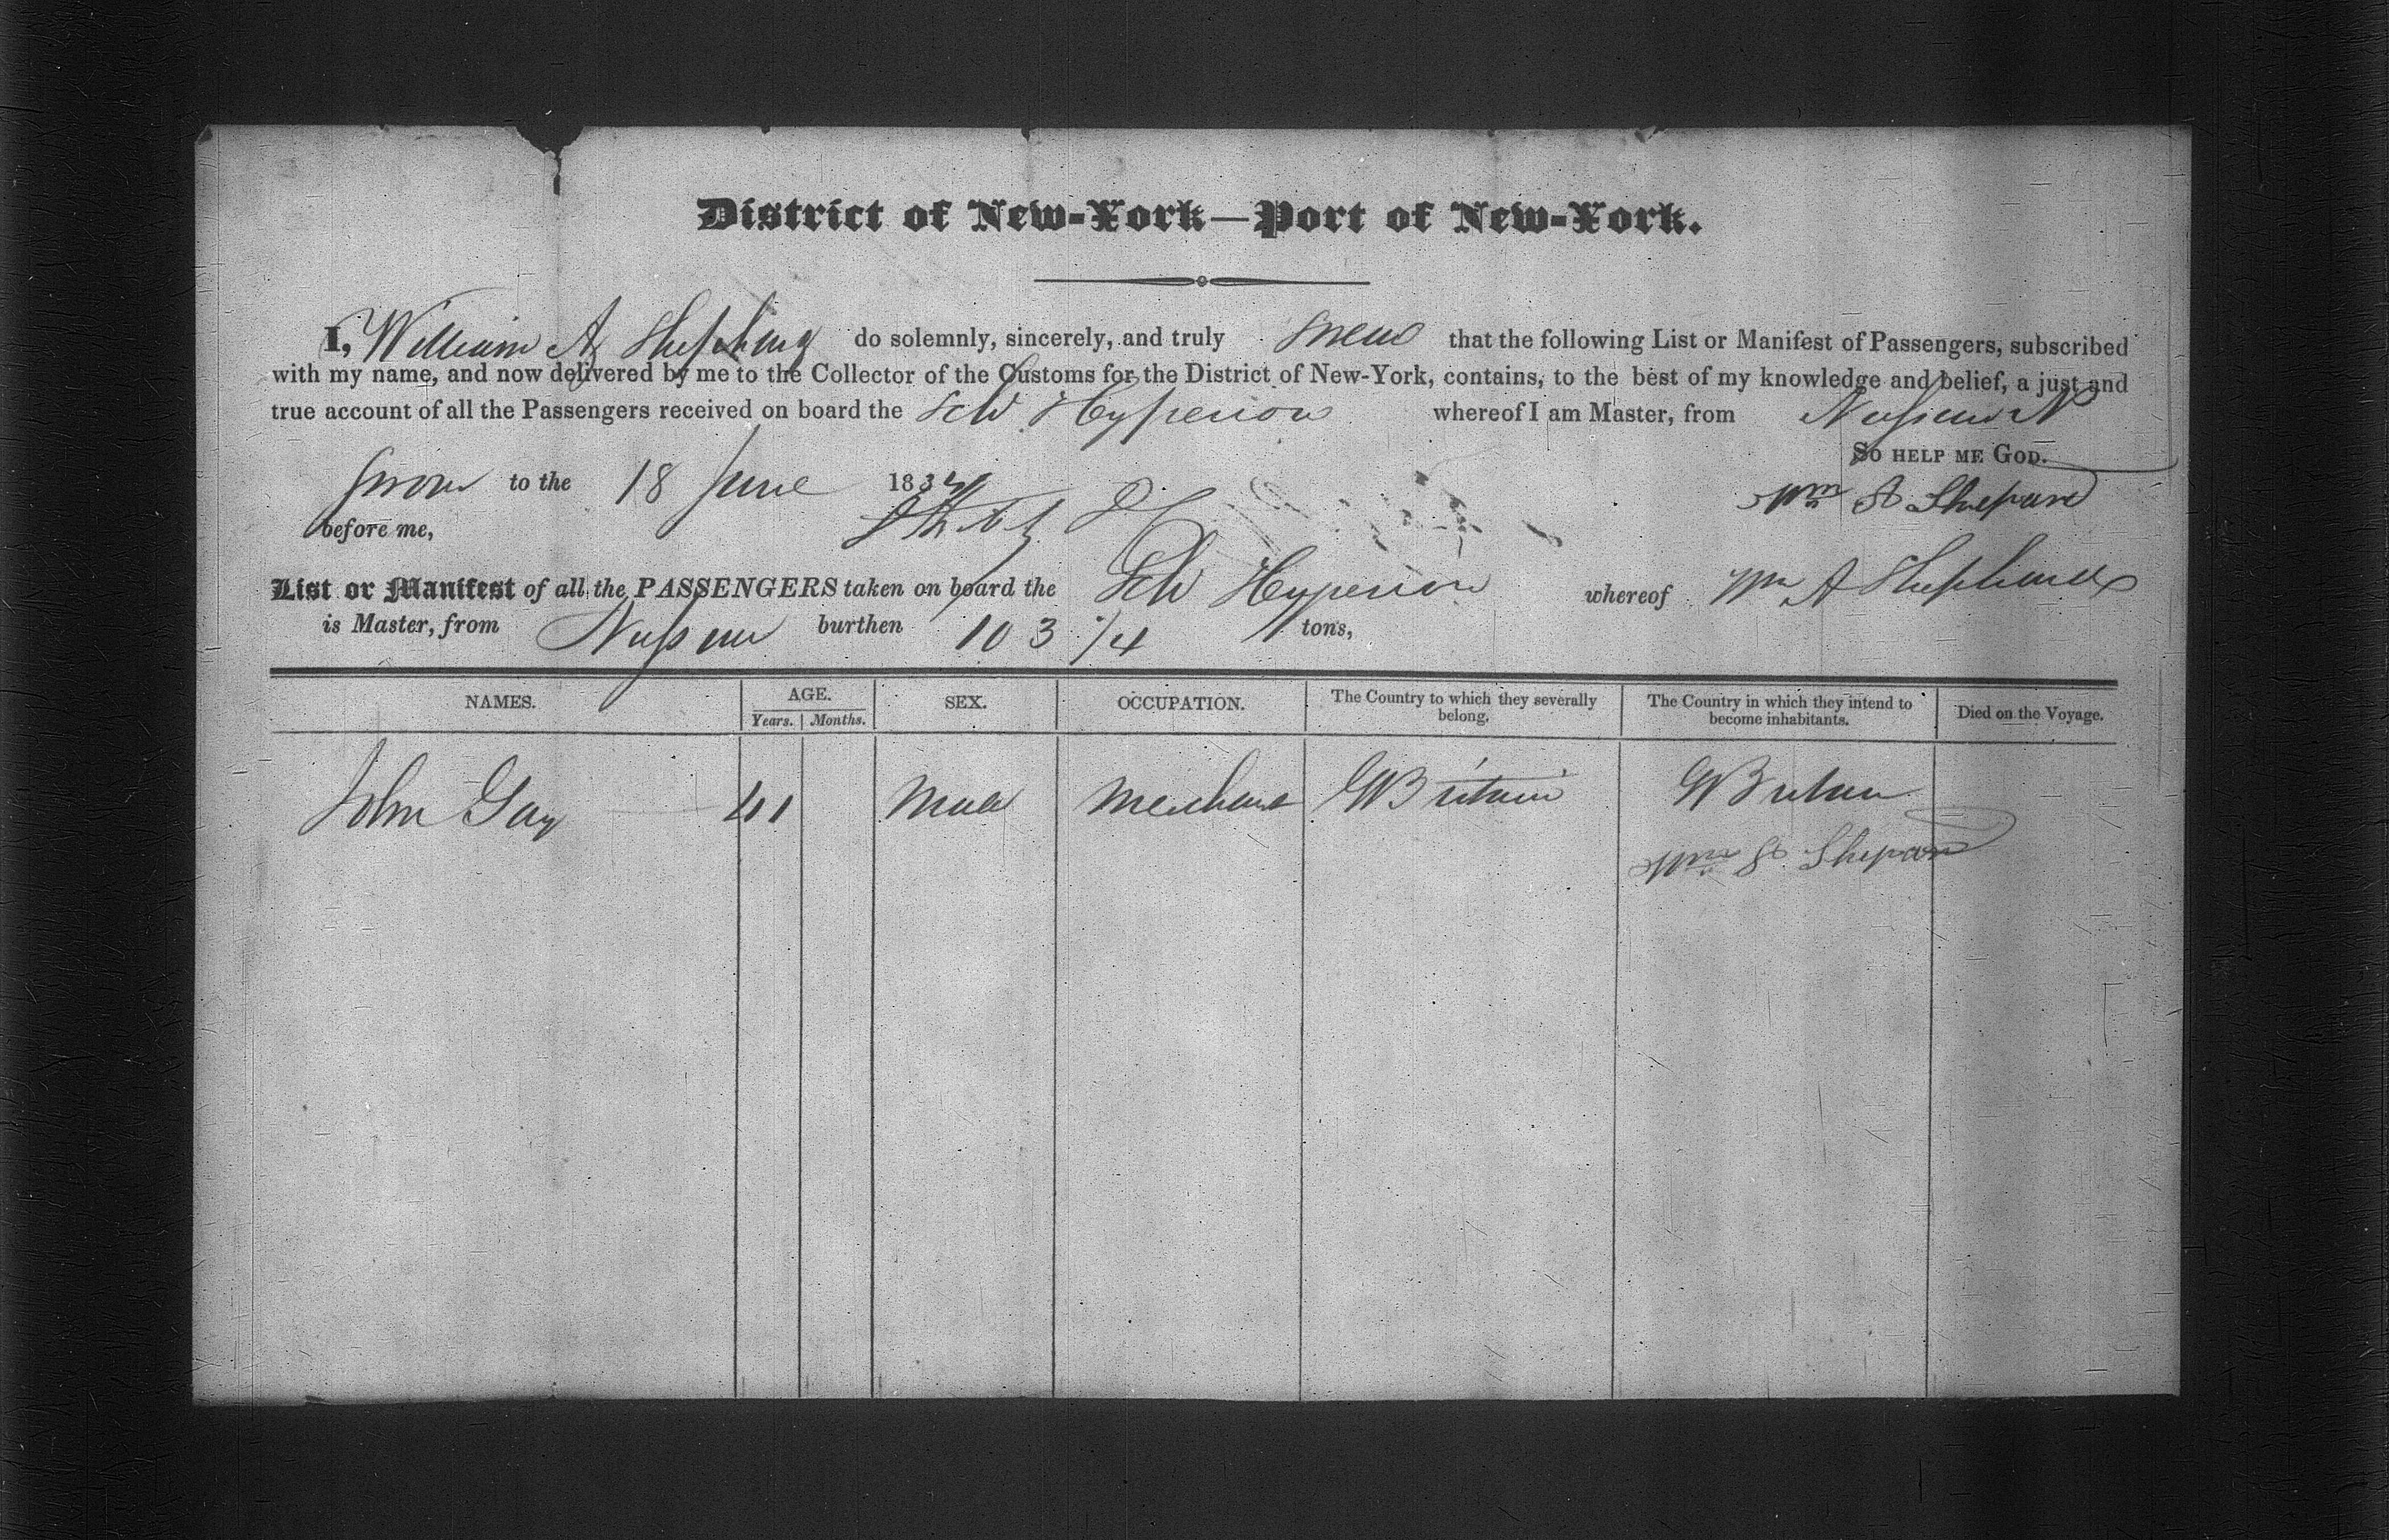 District of New-York—Port of New-York.
I, William A Shephard do solemnly, sincerely, and truly swear that the following List or Manifest of Passengers, subscribed
with my name, and now delivered by me to the Collector of the Customs for the District of New-York, contains, to the best of my knowledge and belief, a just and
true account of all the Passengers received on board the Sch Hyperion whereof I am Master, from Nassau N P
So help me God.
Sworn to the 18 June 183
before me,
Wm A Shepard
List or Manifest of all the PASSENGERS taken on board the Sch Hyperion whereof Wm A Shephard
is Master, from Nassau burthen 103 1/4 tons,
NAMES. AGE. SEX. OCCUPATION. The Country to which they severally belong. The Country in which they intend to become inhabitants. Died on the Voyage.
Years. Months.
John Gay 41 Male Merchant G Britain G Britain
Wm A Shepard